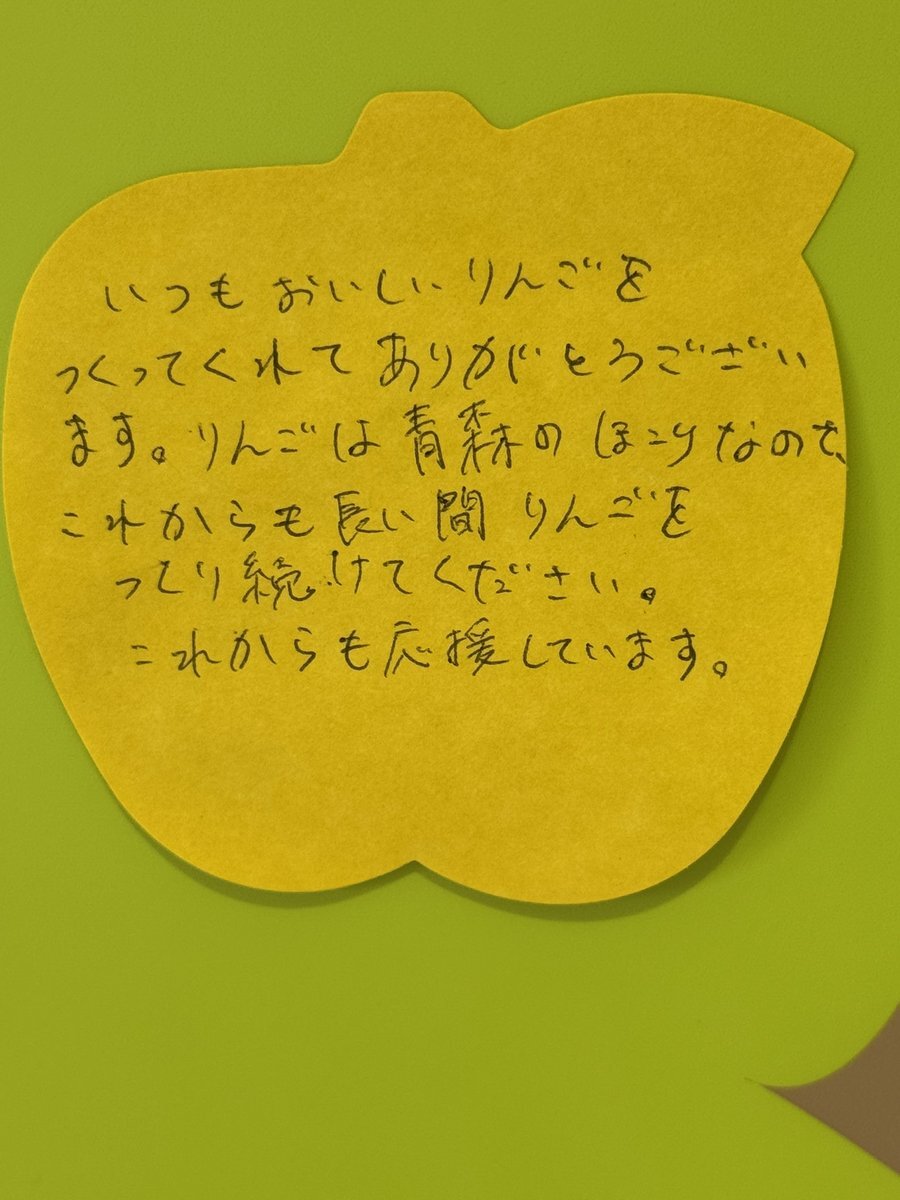 いつもおいしいりんごを
つくってくれてありがとうござい
ます。りんごは青森のほこりなので、
これからも長い間りんごを
つくり続けてください。
これからも応援しています。